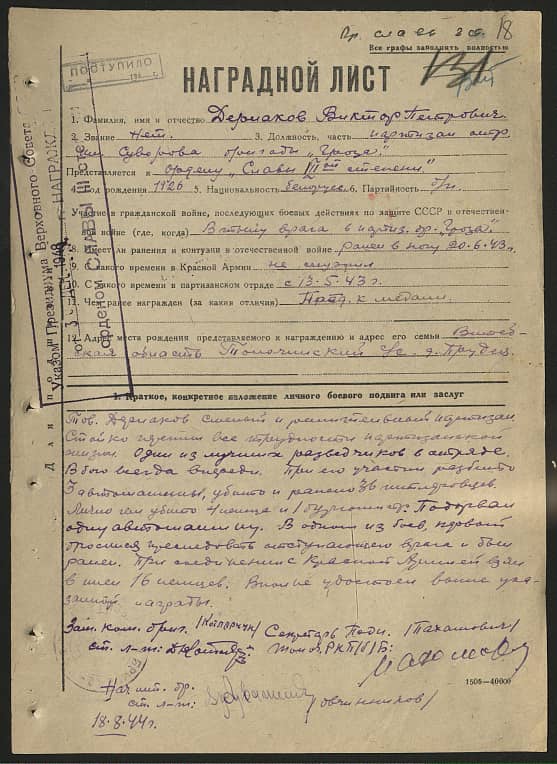 Пр. славы 3 ст. 18
Все графы заполнять полностью
ПОСТУПИЛО
НАГРАДНОЙ ЛИСТ
1. Фамилия, имя и отчество Дерчаков Виктор Петрович
2. Звание Нет. 3. Должность, часть партизан отр.
им. Суворова бригады "Гроза".
Представляется к Ордену "Славы III ой степени"
4. Год рождения 1926 5. Национальность белорус 6. Партийность б/п.
7. Участие в гражданской войне, последующих боевых действиях по защите СССР и отечествен-
ной войне (где, когда) В тылу врага в партиз. бр. "Гроза".
8. Имеет ли ранения и контузии в отечественной войне ранен в ногу 20.6.43г.
9. С какого времени в Красной Армии не служил
10. С какого времени в партизанском отряде с 13.5.43г.
11. Чем ранее награжден (за какие отличия) Пред. к медали.
12. Адрес места рождения представляемого к награждению и адрес его семьи Витеб-
ская область Толочинский р/н. д.
Указом Президиума Верховного Совета
НАГРАЖДЕН
Орденом СЛАВЫ III ст.
1. Краткое, конкретное изложение личного боевого подвига или заслуг
Тов. смелый и решительный партизан.
Стойко все трудности партизанской
жизни. Один из лучших разведчиков в отряде.
В бою всегда впереди. При его участии разбито
3 автомашины, убито и ранено 36 гитлеровцев.
Лично им убито 4 немца и 1 Подорвал
одну автомашину. В одном из боев, первый
бросился преследовать отступающего врага и был
ранен. При соединении с Красной Армией взял
в плен 16 немцев. Вполне удостоен выше ука-
занной награды.
Зам. ком. бриг. Секретарь Подп.
ст. л-т: РКП/б/Б:
Нач. шт. бр.
ст. л-т: /Овчинников/
18.8.44г.
1505—40000